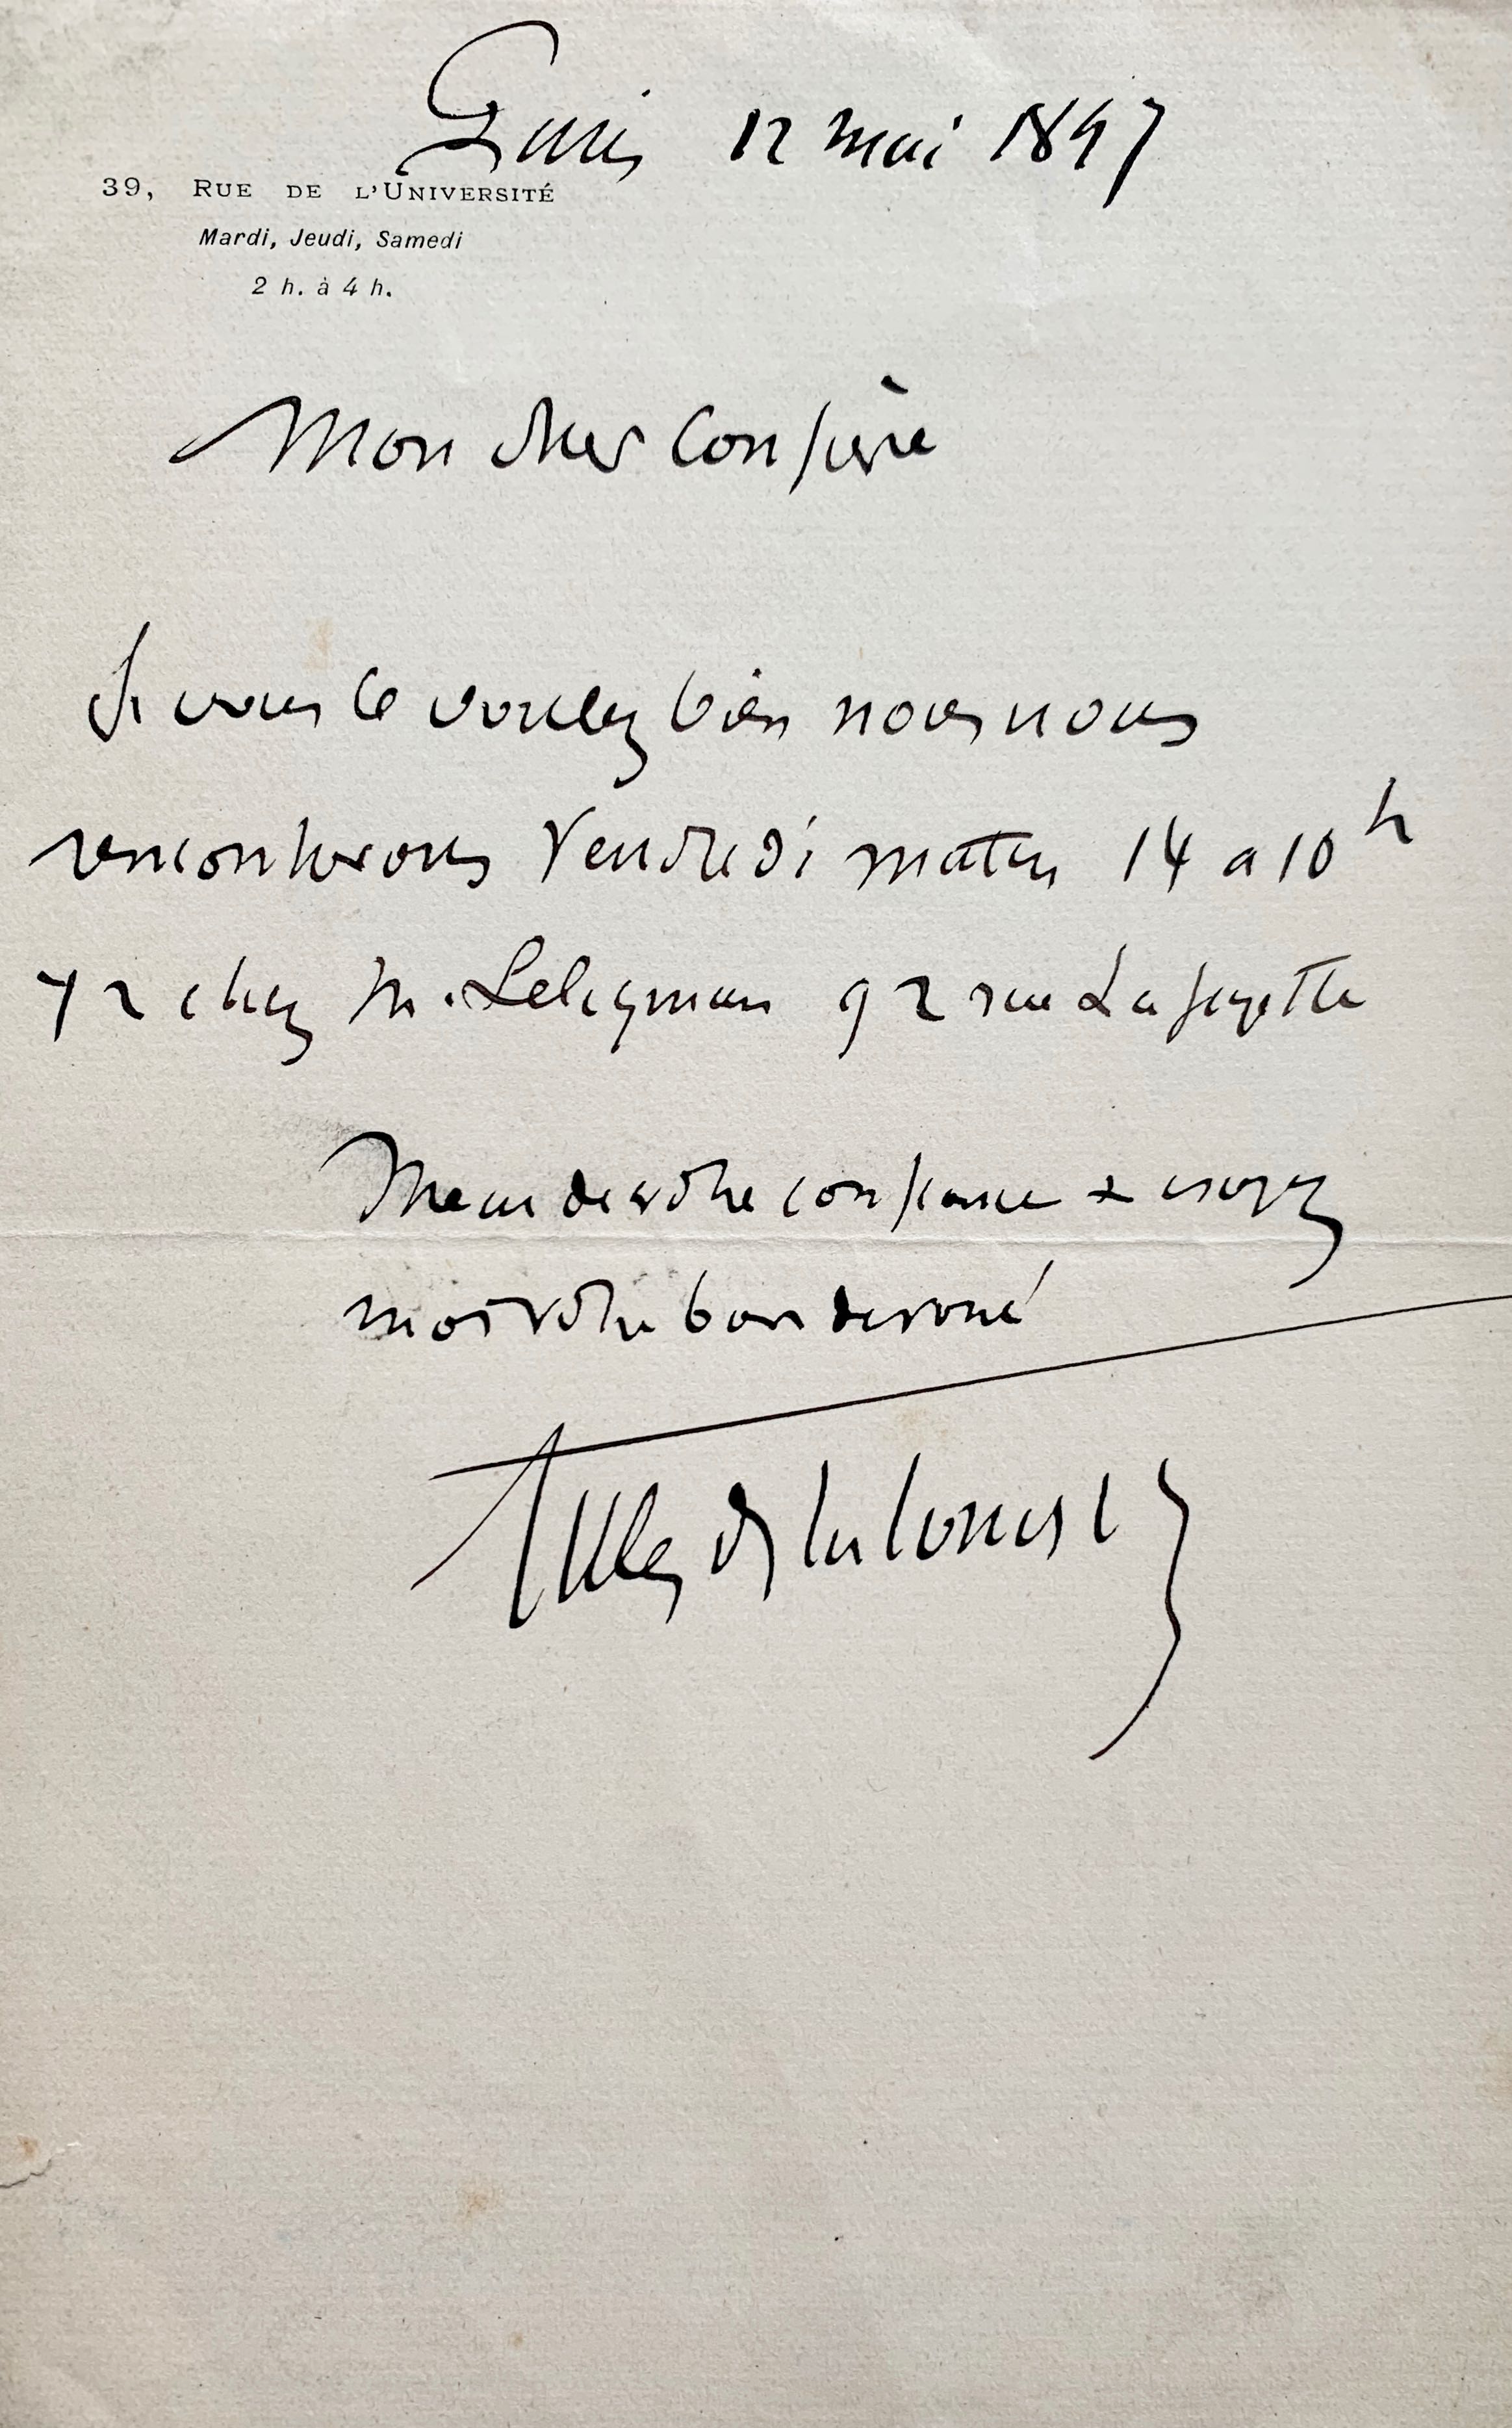 Paris 12 mai 1897
39, RUE DE L'UNIVERSITÉ
Mardi, Jeudi, Samedi
2 h. à 4 h.
Mon cher Confrère
Si vous le voulez bien nous nous
rencontrerons Vendredi matin 14 a 10 h
1/2 chez M. Seligman 92 rue Lafayette
Merci de votre confiance & croyez
moi votre bien devoué
Gilles de la Tourette